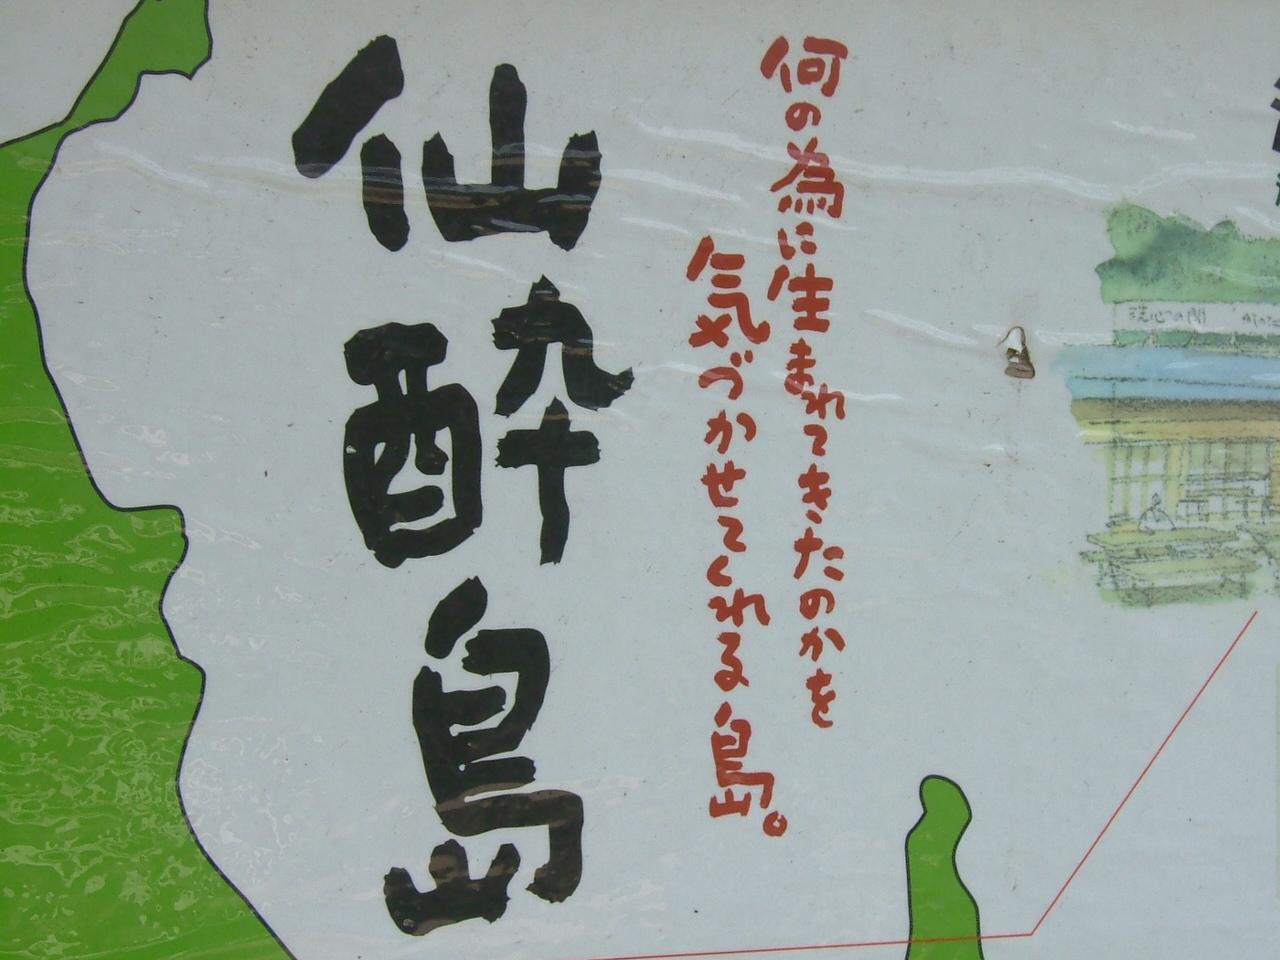 何の為に生まれてきたのかを
気づかせてくれる島。
仙酔島